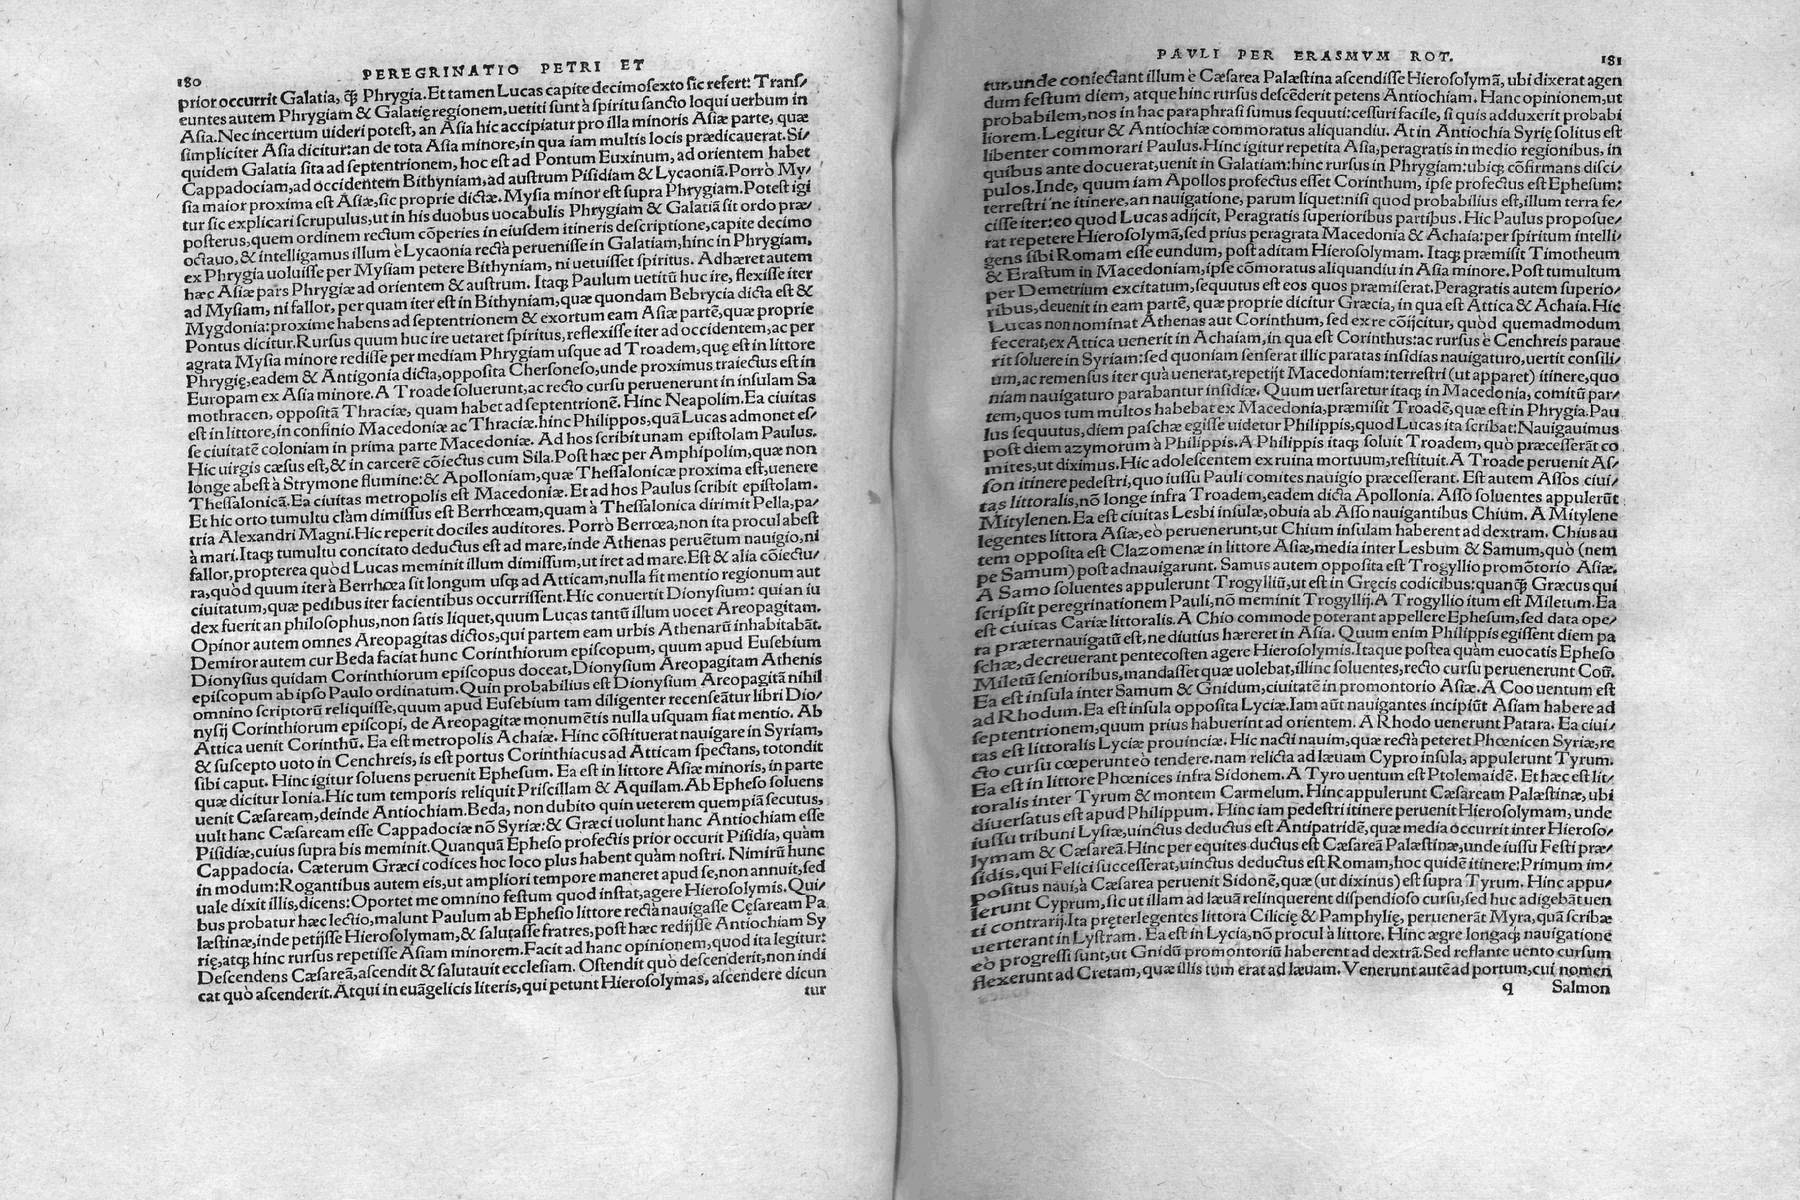 180
PEREGRINATIO PETRI ET
prior occurrit Galatia, q̃ꝫ Phrygia. Et tamen Lucas capite decimosexto sic refert: Trans/
euntes autem Phrygiam & Galatię regionem, uetiti sunt à spiritu sancto loqui uerbum in
Asia. Nec incertum uideri potest, an Asia hic accipiatur pro illa minoris Asiæ parte, quæ
simpliciter Asia dicitur: an de tota Asia minore, in qua iam multis locis prædicauerat. Si/
quidem Galatia sita ad septentrionem, hoc est ad Pontum Euxinum, ad orientem habet
Cappadociam, ad occidentem Bithyniam, ad austrum Pisidiam & Lycaoniã. Porrò My/
sia maior proxima est Asiæ, sic proprie dictæ. Mysia minor est supra Phrygiam. Potest igi
tur sic explicari scrupulus, ut in his duobus uocabulis Phrygiam & Galatiã sit ordo præ/
posterus, quem ordinem rectum cõperies in eiusdem itineris descriptione, capite decimo
octauo, & intelligamus illum è Lycaonia rectà peruenisse in Galatiam, hinc in Phrygiam,
ex Phrygia uoluisse per Mysiam petere Bithyniam, ni uetuisset spiritus. Adhæret autem
hæc Asiæ pars Phrygiæ ad orientem & austrum. Itaqꝫ Paulum uetitũ huc ire, flexisse iter
ad Mysiam, ni fallor, per quam iter est in Bithyniam, quæ quondam Bebrycia dicta est &
Mygdonia: proxime habens ad septentrionem & exortum eam Asiæ partẽ, quæ proprie
Pontus dicitur. Rursus quum huc ire uetaret spiritus, reflexisse iter ad occidentem, ac per
agrata Mysia minore redisse per mediam Phrygiam usque ad Troadem, quę est in littore
Phrygię, eadem & Antigonia dicta, opposita Chersoneso, unde proximus traiectus est in
Europam ex Asia minore. A Troade soluerunt, ac recto cursu peruenerunt in insulam Sa
mothracen, oppositã Thraciæ, quam habet ad septentrionẽ. Hinc Neapolim. Ea ciuitas
est in littore, in confinio Macedoniæ ac Thraciæ. hinc Philippos, quã Lucas admonet es/
se ciuitatẽ coloniam in prima parte Macedoniæ. Ad hos scribit unam epistolam Paulus.
Hic uirgis cæsus est, & in carcerẽ cõiectus cum Sila. Post hæc per Amphipolim, quæ non
longe abest à Strymone flumine: & Apolloniam, quæ Thessalonicæ proxima est, uenere
Thessalonicã. Ea ciuitas metropolis est Macedoniæ. Et ad hos Paulus scribit epistolam.
Et hic orto tumultu clàm dimissus est Berrhœam, quam à Thessalonica dirimit Pella, pa/
tria Alexandri Magni. Hic reperit dociles auditores. Porrò Berrœa, non ita procul abest
à mari. Itaqꝫ tumultu concitato deductus est ad mare, inde Athenas peruẽtum nauigio, ni
fallor, propterea quòd Lucas meminit illum dimissum, ut iret ad mare. Est & alia cõiectu/
ra, quòd quum iter à Berrhœa sit longum usqꝫ ad Atticam, nulla fit mentio regionum aut
ciuitatum, quæ pedibus iter facientibus occurrissent. Hic conuertit Dionysium: qui an iu
dex fuerit an philosophus, non satis liquet, quum Lucas tantũ illum uocet Areopagitam.
Opinor autem omnes Areopagitas dictos, qui partem eam urbis Athenarũ inhabitabãt.
Demiror autem cur Beda faciat hunc Corinthiorum episcopum, quum apud Eusebium
Dionysius quidam Corinthiorum episcopus doceat, Dionysium Areopagitam Athenis
episcopum ab ipso Paulo ordinatum. Quin probabilius est Dionysium Areopagitã nihil
omnino scriptorũ reliquisse, quum apud Eusebium tam diligenter recenseãtur libri Dio/
nysij Corinthiorum episcopi, de Areopagitæ monumẽtis nulla usquam fiat mentio. Ab
Attica uenit Corinthũ. Ea est metropolis Achaiæ. Hinc cõstituerat nauigare in Syriam,
& suscepto uoto in Cenchreis, is est portus Corinthiacus ad Atticam spectans, totondit
sibi caput. Hinc igitur soluens peruenit Ephesum. Ea est in littore Asiæ minoris, in parte
quæ dicitur Ionia. Hic tum temporis reliquit Priscillam & Aquilam. Ab Epheso soluens
uenit Cæsaream, deinde Antiochiam. Beda, non dubito quin ueterem quempiã secutus,
uult hanc Cæsaream esse Cappadociæ nõ Syriæ: & Græci uolunt hanc Antiochiam esse
Pisidiæ, cuius supra bis meminit. Quanquã Epheso profectis prior occurit Pisidia, quàm
Cappadocia. Cæterum Græci codices hoc loco plus habent quàm nostri. Nimirũ hunc
in modum: Rogantibus autem eis, ut ampliori tempore maneret apud se, non annuit, sed
uale dixit illis, dicens: Oportet me omnino festum quod instat, agere Hierosolymis. Qui/
bus probatur hæc lectio, malunt Paulum ab Ephesio littore rectà nauigasse Cęsaream Pa
læstinæ, inde petijsse Hierosolymam, & salutasse fratres, post hæc redijsse Antiochiam Sy
rię, atqꝫ hinc rursus repetisse Asiam minorem. Facit ad hanc opinionem, quod ita legitur:
Descendens Cæsareã, ascendit & salutauit ecclesiam. Ostendit quò descenderit, non indi
cat quò ascenderit. Atqui in euãgelicis literis, qui petunt Hierosolymas, ascendere dicun
tur
PAVLI PER ERASMVM ROT.
181
tur, unde coniectant illum è Cæsarea Palæstina ascendisse Hierosolymã, ubi dixerat agen
dum festum diem, atque hinc rursus descẽderit petens Antiochiam. Hanc opinionem, ut
probabilem, nos in hac paraphrasi sumus sequuti: cessuri facile, si quis adduxerit probabi
liorem. Legitur & Antiochiæ commoratus aliquandiu. At in Antiochia Syrię solitus est
libenter commorari Paulus. Hinc igitur repetita Asia, peragratis in medio regionibus, in
quibus ante docuerat, uenit in Galatiam: hinc rursus in Phrygiam: ubiqꝫ cõfirmans disci/
pulos. Inde, quum iam Apollos profectus esset Corinthum, ipse profectus est Ephesum:
terrestri ne itinere, an nauigatione, parum liquet: nisi quod probabilius est, illum terra fe/
cisse iter: eo quod Lucas adijcit, Peragratis superioribus partibus. Hic Paulus proposue/
rat repetere Hierosolymã, sed prius peragrata Macedonia & Achaia: per spiritum intelli/
gens sibi Romam esse eundum, post aditam Hierosolymam. Itaqꝫ præmisit Timotheum
& Erastum in Macedoniam, ipse cõmoratus aliquandiu in Asia minore. Post tumultum
per Demetrium excitatum, sequutus est eos quos præmiserat. Peragratis autem superio/
ribus, deuenit in eam partẽ, quæ proprie dicitur Græcia, in qua est Attica & Achaia. Hic
Lucas non nominat Athenas aut Corinthum, sed ex re cõijcitur, quòd quemadmodum
fecerat, ex Attica uenerit in Achaiam, in qua est Corinthus: ac rursus è Cenchreis paraue
rit soluere in Syriam: sed quoniam senserat illic paratas insidias nauigaturo, uertit consili/
um, ac remensus iter quà uenerat, repetijt Macedoniam: terrestri (ut apparet) itinere, quo
niam nauigaturo parabantur insidiæ. Quum uersaretur itaqꝫ in Macedonia, comitũ par/
tem, quos tum multos habebat ex Macedonia, præmisit Troadẽ, quæ est in Phrygia. Pau
lus sequutus, diem paschæ egisse uidetur Philippis, quod Lucas ita scribat: Nauigauimus
post diem azymorum à Philippis. A Philippis itaqꝫ soluit Troadem, quò præcesserãt co
mites, ut diximus. Hic adolescentem ex ruina mortuum, restituit. A Troade peruenit As/
son itinere pedestri, quo iussu Pauli comites nauigio præcesserant. Est autem Assos ciui/
tas littoralis, nõ longe infra Troadem, eadem dicta Apollonia. Asso soluentes appulerũt
Mitylenen. Ea est ciuitas Lesbi insulæ, obuia ab Asso nauigantibus Chium. A Mitylene
legentes littora Asiæ, eò peruenerunt, ut Chium insulam haberent ad dextram. Chius au
tem opposita est Clazomenæ in littore Asiæ, media inter Lesbum & Samum, quò (nem
pe Samum) post adnauigarunt. Samus autem opposita est Trogyllio promõtorio Asiæ.
A Samo soluentes appulerunt Trogylliũ, ut est in Gręcis codicibus: quanq̃ꝫ Græcus qui
scripsit peregrinationem Pauli, nõ meminit Trogyllij. A Trogyllio itum est Miletum. Ea
est ciuitas Cariæ littoralis. A Chio commode poterant appellere Ephesum, sed data ope/
ra præternauigatũ est, ne diutius hæreret in Asia. Quum enim Philippis egissent diem pa
schæ, decreuerant pentecosten agere Hierosolymis. Itaque postea quàm euocatis Epheso
Miletũ senioribus, mandasset quæ uolebat, illinc soluentes, recto cursu peruenerunt Coũ.
Ea est insula inter Samum & Gnidum, ciuitatẽ in promontorio Asiæ. A Coo uentum est
ad Rhodum. Ea est insula opposita Lyciæ. Iam aũt nauigantes incipiũt Asiam habere ad
septentrionem, quum prius habuerint ad orientem. A Rhodo uenerunt Patara. Ea ciui/
tas est littoralis Lyciæ prouinciæ. Hic nacti nauim, quæ rectà peteret Phœnicen Syriæ, re
cto cursu cœperunt eò tendere. nam relicta ad læuam Cypro insula, appulerunt Tyrum.
Ea est in littore Phœnices infra Sidonem. A Tyro uentum est Ptolemaidẽ. Et hæc est lit/
toralis inter Tyrum & montem Carmelum. Hinc appulerunt Cæsaream Palæstinæ, ubi
diuersatus est apud Philippum. Hinc iam pedestri itinere peruenit Hierosolymam, unde
iussu tribuni Lysiæ, uinctus deductus est Antipatridẽ, quæ media occurrit inter Hieroso/
lymam & Cæsareã. Hinc per equites ductus est Cæsareã Palæstinæ, unde iussu Festi præ/
sidis, qui Felici successerat, uinctus deductus est Romam, hoc quidẽ itinere: Primum im/
positus naui, à Cæsarea peruenit Sidonẽ, quæ (ut dixinus) est supra Tyrum. Hinc appu/
lerunt Cyprum, sic ut illam ad læuã relinquerent dispendioso cursu, sed huc adigebãt uen
ti contrarij. Ita pręterlegentes littora Cilicię & Pamphylię, peruenerãt Myra, quã scribæ
uerterant in Lystram. Ea est in Lycia, nõ procul à littore. Hinc ægre longaqꝫ nauigatione
eò progressi sunt, ut Gnidũ promontoriũ haberent ad dextrã. Sed reflante uento cursum
flexerunt ad Cretam, quæ illis tum erat ad læuam. Venerunt autẽ ad portum, cui nomen
q Salmon